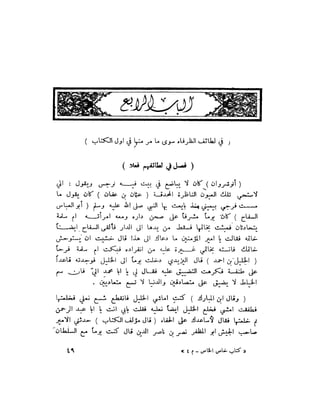 الباب الرابع
( في لطائف الظرفاء سوى ما مر منها في اول الكتاب )
( فصل في لطائفهم فعلا )
( أنوشروان ) كان لا يباضع في بيت فيه نرجس ويقول : اني
لاستحي تلك العيون الناظرة المحدقة ( عثمان بن عفان ) كان يقول ما
مسست فرجي بيميني منذ بايعت بها النبي صلى الله عليه وسلم ( أبو العباس
السفاح ) كان يوماً مشرفاً على صحن داره ومعه امرأته ام سلمة
يتحادثان فعبثت بخاتمها فسقط من يدها الى الدار فألقى السفاح ايضاً
خاتمه فقالت يا امير المؤمنين ما دعاك الى هذا قال خشيت ان يستوحش
خاتمك فآنسته بخاتمي غيرة عليه من انفراده فبكت ام سلمة فرحاً
( الخليل بن احمد ) قال اليزيدي دخلت يوماً الى الخليل فوجدته قاعداً
على طنفسة فكرهت التضييق عليه فقال لي يا ابا محمد اليّ فان سم
الخياط لا يضيق على متصادقين والدنيا لا تسع متعاديين .
( وقال ابن المبارك ) كنت اماشي الخليل فانقطع شسع نعلي فخلعتها
فطفقت امشي فخلع الخليل ايضاً نعليه فقلت بأبي انت يا ابا عبد الرحمن
لم خلعتها فقال لأساعدك على الحفاء ( قال مؤلف الكتاب ) حدثني الامير
صاحب الجيش ابو المظفر نصر بن ناصر الدين قال كنت يوماً مع السلطان
« كتاب خاص الخاص - م ٤ » ٤٩